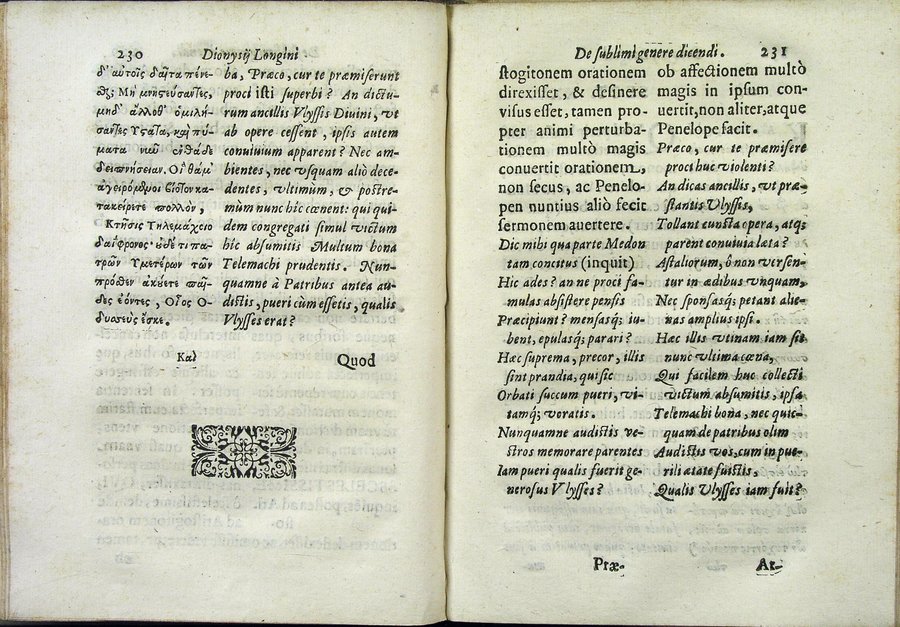 230 Dionysij Longini
δ' αὐτοῖς δαῖτα πένε-
σθαι; Μὴ μνηστεύσαντες,
μηδ' ἄλλοθ' ὁμιλή-
σαντες Ὕστατα, καὶ πύ-
ματα νῦν ἐνθάδε
δειπνήσειαν. Οἳ θάμ'
ἀγειρόμενοι βίοτον κα-
τακείρετε πολλὸν,
Κτῆσιν Τηλεμάχειο
δαΐφρονος· οὐδέ τι πα-
τρῶν Ὑμετέρων τῶν
πρόσθεν ἀκούετε παῖ-
δες ἐόντες, Οἷος Ὀ-
δυσσεὺς ἔσκε.
Καὶ
ba, Præco, cur te præmiserunt
proci isti superbi? An dictu-
rum ancillis Vlyssis Diuini, vt
ab opere cessent, ipsis autem
conuiuium apparent? Nec am-
bientes, nec vsquam aliò dece-
dentes, vltimùm, & postre-
mùm nunc hîc cœnent: qui qui-
dem congregati simul victum
hîc absumitis Multum bona
Telemachi prudentis. Nun-
quamne à Patribus antea au-
distis, pueri cùm essetis, qualis
Vlysses erat?
Quod
De sublimi genere dicendi. 231
stogitonem orationem
direxisset, & desinere
visus esset, tamen pro-
pter animi perturba-
tionem multò magis
conuertit orationem,
non secus, ac Penelo-
pen nuntius aliò fecit
sermonem auertere.
Dic mihi qua parte Medon
tam concitus (inquit)
Hic ades? an ne proci fa-
mulas absistere pensis
Præcipiunt? mensasq; iu-
bent, epulasq; parari?
Hæc suprema, precor, illis
sint prandia, qui sic
Orbati succum pueri, vi-
tamq; veratis.
Nunquamne audistis ve-
stros memorare parentes
Iam pueri qualis fuerit ge-
nerosus Vlysses?
Præ-
ob affectionem multò
magis in ipsum con-
uertit, non aliter, atque
Penelope facit.
Præco, cur te præmisere
proci huc violenti?
An dicas ancillis, vt præ-
stantis Vlyssis,
Tollant cuncta opera, atq;
parent conuiuia læta?
Astaliorum, ô non versen-
tur in ædibus vnquam,
Nec sponsasq; petant alie-
nas amplius ipsi.
Hæc illis vtinam iam sit
nunc vltima cœna,
Qui facilem huc collecti
victum absumitis, ipsa
Telemachi bona, nec quic-
quam de patribus olim
Audistis vos, cum in pue-
rili ætate fuistis,
Qualis Vlysses iam fuit?
At-